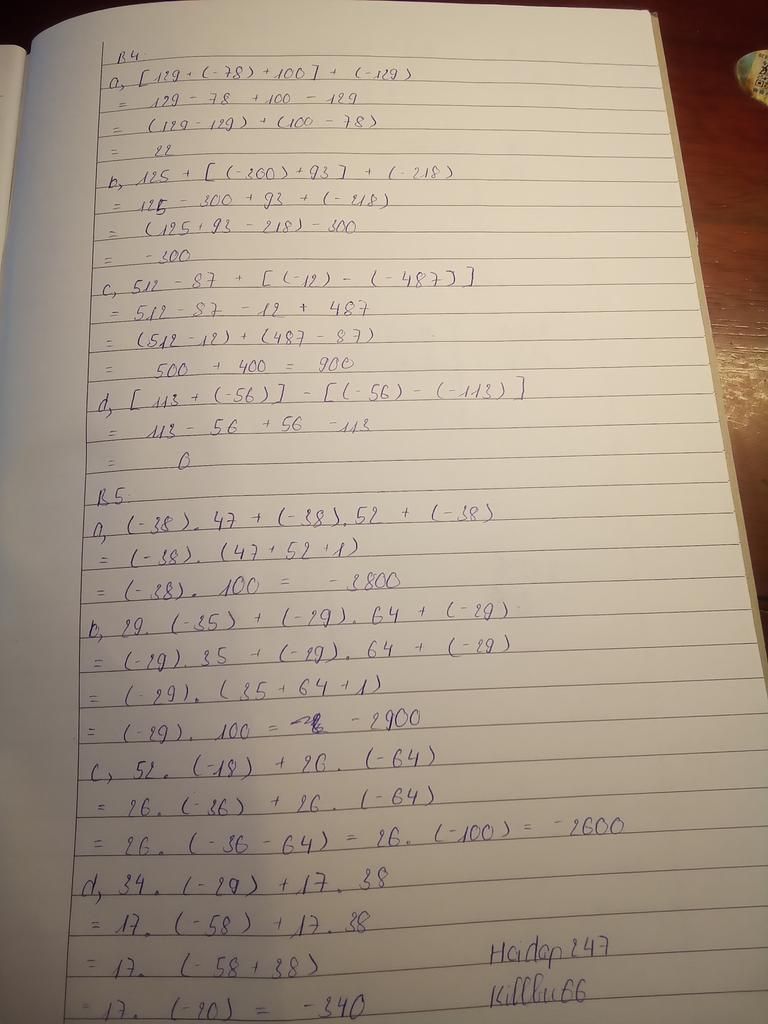 B4.
a, [129 + (-78) + 100] + (-129)
= 129 - 78 + 100 - 129
= (129 - 129) + (100 - 78)
= 22
b, 125 + [(-200) + 93] + (-218)
= 125 - 300 + 93 + (-218)
= (125 + 93 - 218) - 300
= -300
c, 512 - 87 + [(-12) - (-487)]
= 512 - 87 - 12 + 487
= (512 - 12) + (487 - 87)
= 500 + 400 = 900
d, [113 + (-56)] - [(-56) - (-113)]
= 113 - 56 + 56 - 113
= 0
B5.
a, (-38). 47 + (-38). 52 + (-38)
= (-38). (47 + 52 + 1)
= (-38). 100 = -3800
b, 29. (-35) + (-29). 64 + (-29)
= (-29). 35 + (-29). 64 + (-29)
= (-29). (35 + 64 + 1)
= (-29). 100 = -2900
c, 52. (-18) + 26. (-64)
= 26. (-36) + 26. (-64)
= 26. (-36 - 64) = 26. (-100) = -2600
d, 34. (-29) + 17. 38
= 17. (-58) + 17. 38
= 17. (-58 + 38)
= 17. (-20) = -340
Hoidap247
Killbu66